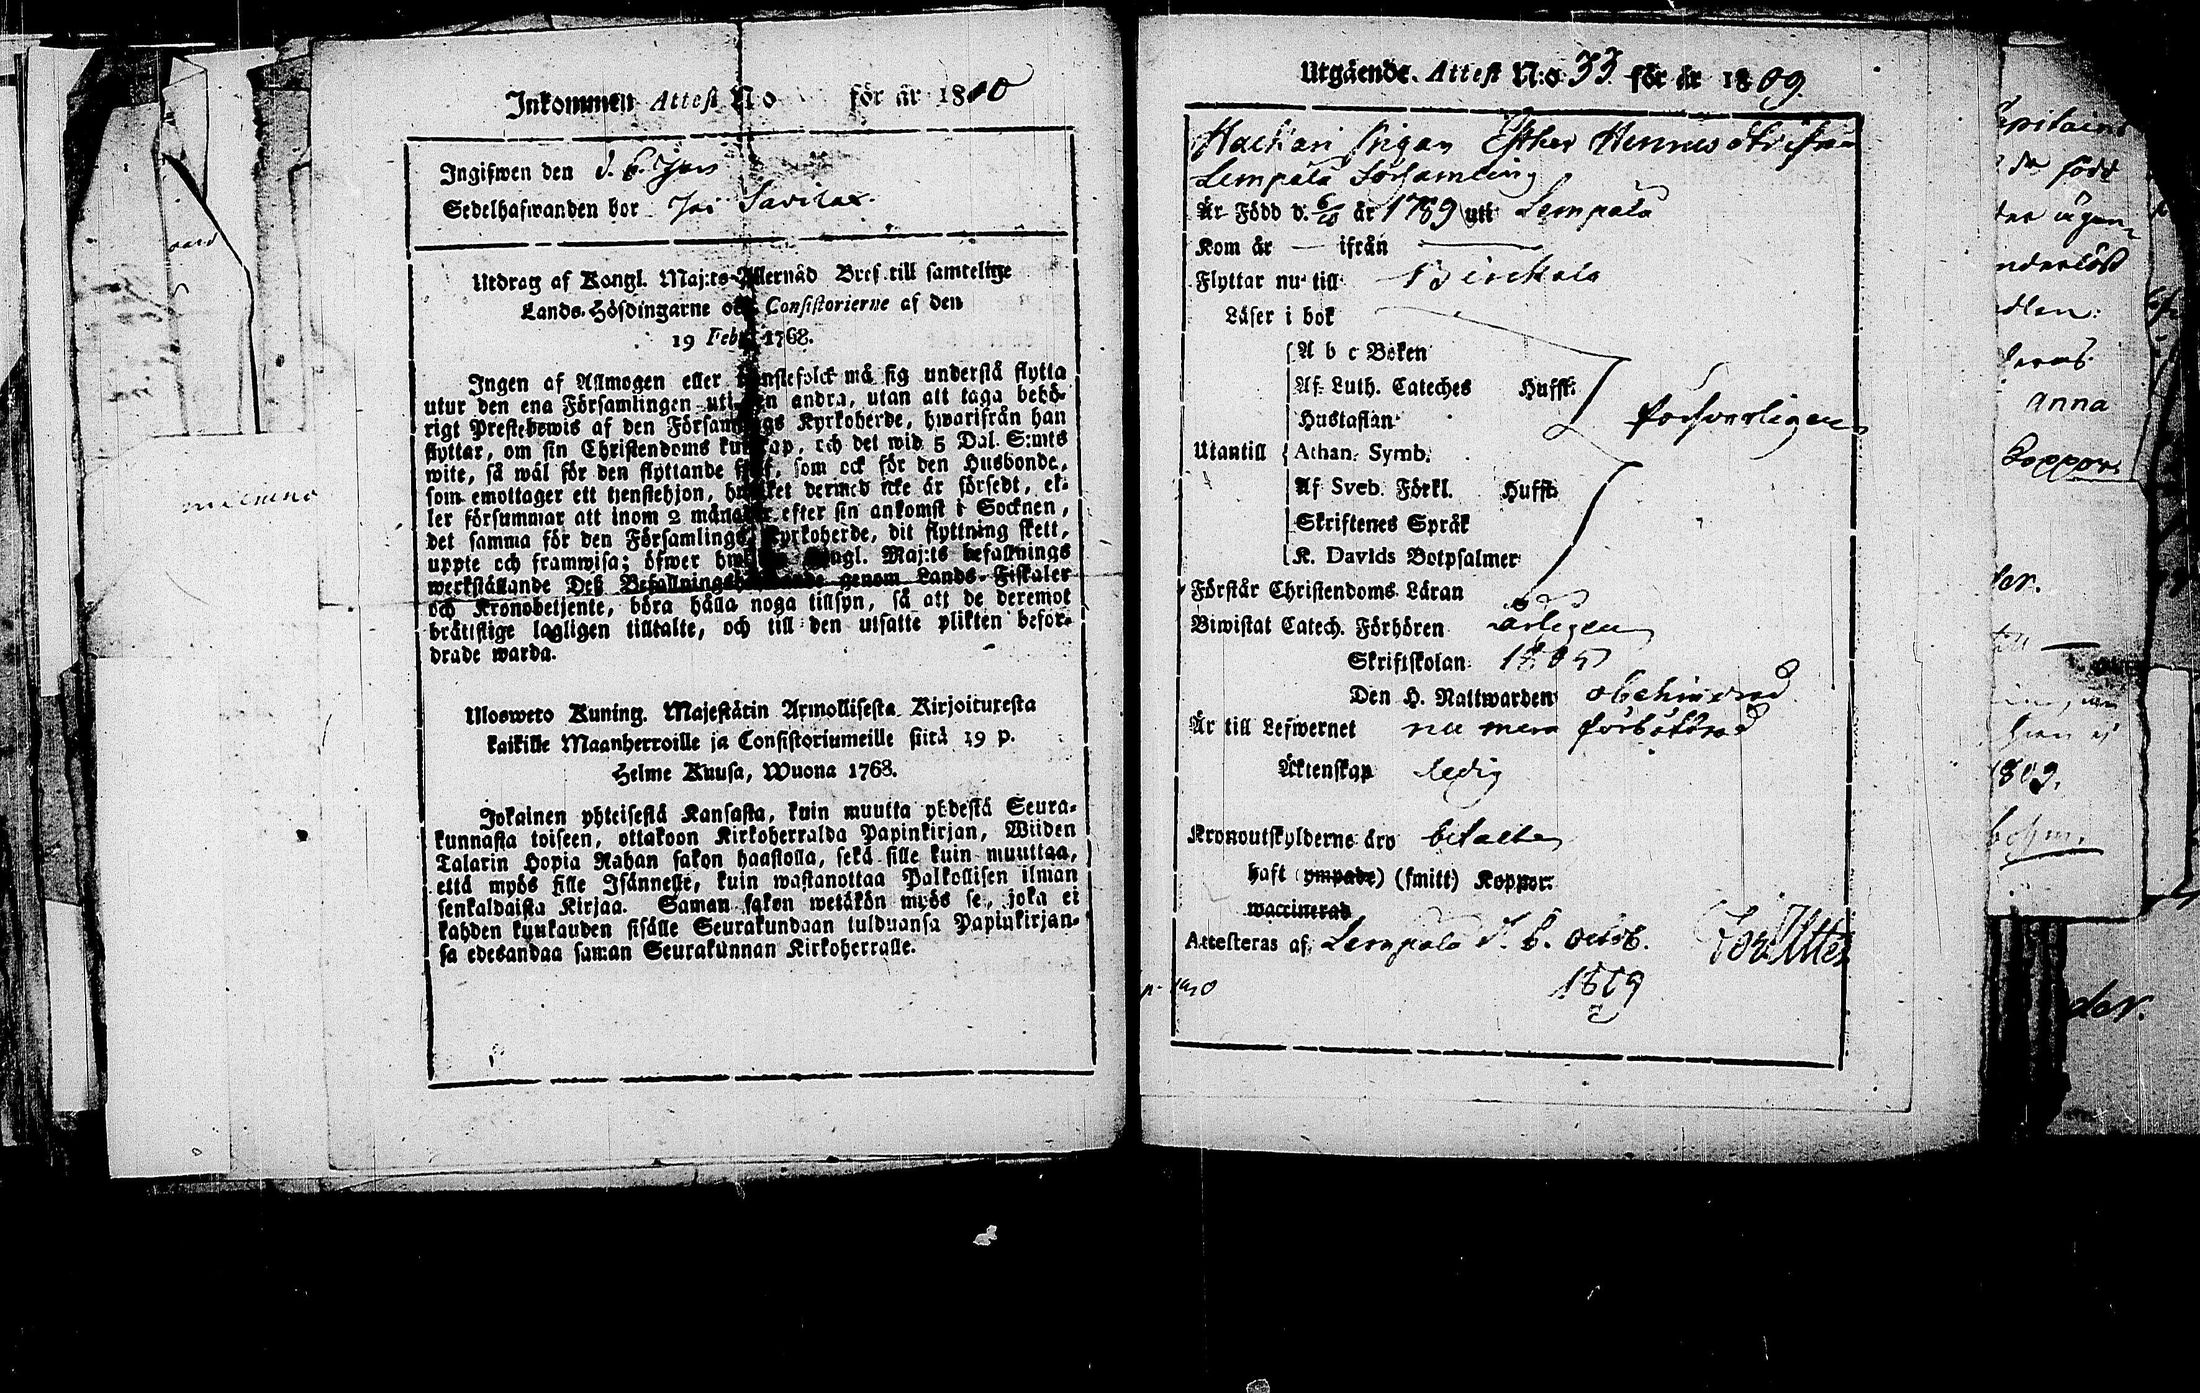 Inkommen Attest N:o för år 1810
Ingifwen den d. 6.
Sedelhafwanden bor
Utdrag af Kongl. Maj:ts Allernåd Bref till samtelige
Lands-Höfdingarne och Consistorierne af den
19 Febr. 1768.
Ingen af Allmogen eller tjenstefolck må sig understå flytta
utur den ena Församlingen uti den andra, utan att taga behö-
rigt Prestebewis af den Församlings Kyrkoherde, hwarifrån han
flyttar, om sin Christendoms kunskap, och det wid 5 Dal. S:mts
wite, så wäl för den flyttande sielf, som ock för den Husbonde,
som emottager ett tjenstehjon, hwilket dermed icke är försedt, el-
ler försummar att inom 2 månader efter sin ankomst i Socknen,
det samma för den Församlings Kyrkoherde, dit flyttning skett,
uppte och framwisa; öfwer hwilket Kongl. Maj:ts befallnings
werkställande Deß Befallningshafwande genom Lands-Fiskaler
och Kronobetjente, böra hålla noga tillsyn, så att de deremot
bråttslige lagligen tilltalte, och till den utsatte plikten befor-
drade warda.
Ulosweto Kuning. Majestätin Armollisesta Kirjoituxesta
kaikille Maanherroille ja Consistoriumeille siitä 19 p.
Helme Kuusa, Wuona 1768.
Jokainen yhteisestä Kansasta, kuin muutta yhdestä Seura-
kunnasta toiseen, ottakoon Kirkoherralda Papinkirjan, Wiiden
Talarin Hopia Rahan sakon haastolla, sekä sille kuin muuttaa,
että myös sille Isännelle, kuin wastanottaa Palkollisen ilman
senkaldaista Kirjaa. Saman sakon wetäkön myös se, joka ei
kahden kuukauden sisälle Seurakundaan tulduansa Papinkirjan-
sa edesandaa saman Seurakunnan Kirkoherralle.
Utgående Attest N:o 33 för år 1809.
Pigan Esther
Lempälä Församling
Är Född d. 6/10 år 1789 uti Lempälä
Kom år — ifrån —
Flyttar nu till Birckala
Läser i bok
A b c Boken
Af Luth. Cateches Hufst.
Hustaflan
försvarligen
Utantill Athan. Symb.
Af Sveb. Förkl. Hufst.
Skriftenes Språk
K. Davids Botpsalmer
Förstår Christendoms Läran
Biwistat Catech. Förhören årligen
Skriftskolan 1805
Den H. Nattwarden obehindrad
Är till Lefwernet nu mera förbättrad
Äktenskap ledig
Kronoutskylderne äro betalte
haft (ympade) (smitt) Koppor.
waccinerad
Attesteras af Lempälä d. 6. Octob.
1809
Capitains
född
Anna
Koppor
1809.